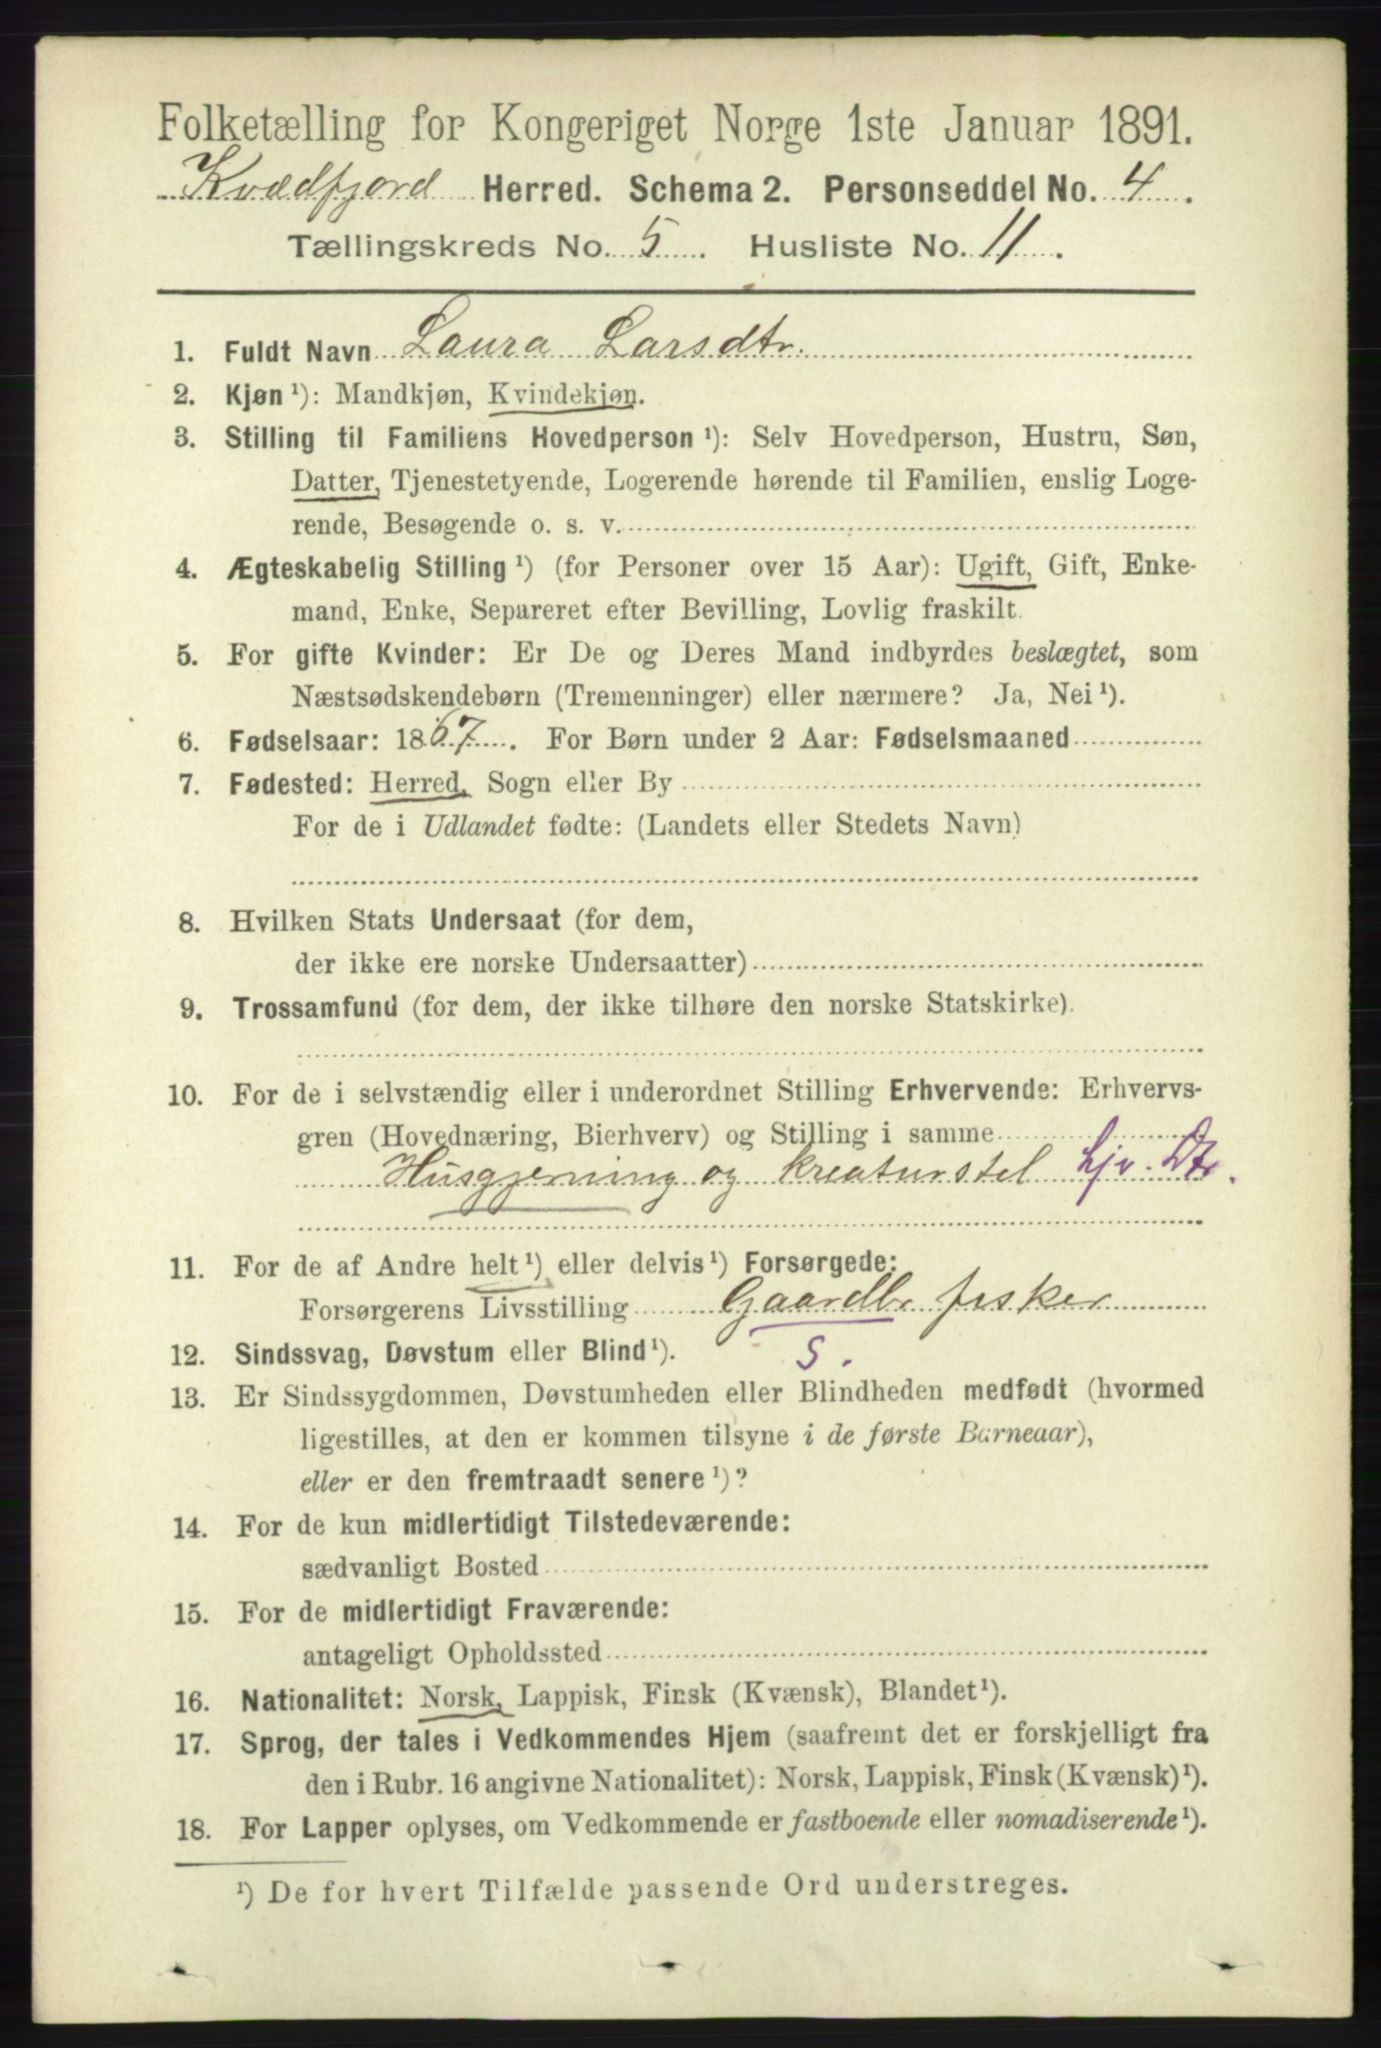 Folketælling for Kongeriget Norge 1ste Januar 1891.
Kvædfjord Herred. Schema 2. Personseddel No. 4.
Tællingskreds No. 5. Husliste No. 11.
1. Fuldt Navn Laura Larsdtr.
2. Kjøn ¹): Mandkjøn, Kvindekjøn.
3. Stilling til Familiens Hovedperson ¹): Selv Hovedperson, Hustru, Søn,
Datter, Tjenestetyende, Logerende hørende til Familien, enslig Loge-
rende, Besøgende o. s. v.
4. Ægteskabelig Stilling ¹) (for Personer over 15 Aar): Ugift, Gift, Enke-
mand, Enke, Separeret efter Bevilling, Lovlig fraskilt.
5. For gifte Kvinder: Er De og Deres Mand indbyrdes beslægtet, som
Næstsødskendebørn (Tremenninger) eller nærmere? Ja, Nei ¹).
6. Fødselsaar: 1867. For Børn under 2 Aar: Fødselsmaaned
7. Fødested: Herred, Sogn eller By
For de i Udlandet fødte: (Landets eller Stedets Navn)
8. Hvilken Stats Undersaat (for dem,
der ikke ere norske Undersaatter)
9. Trossamfund (for dem, der ikke tilhøre den norske Statskirke).
10. For de i selvstændig eller i underordnet Stilling Erhvervende: Erhvervs-
gren (Hovednæring, Bierhverv) og Stilling i samme
Husgjerning og kreaturstel hjv. Dtr.
11. For de af Andre helt ¹) eller delvis ¹) Forsørgede:
Forsørgerens Livsstilling Gaardbr fisker
12. Sindssvag, Døvstum eller Blind ¹). S.
13. Er Sindssygdommen, Døvstumheden eller Blindheden medfødt (hvormed
ligestilles, at den er kommen tilsyne i de første Barneaar),
eller er den fremtraadt senere ¹)?
14. For de kun midlertidigt Tilstedeværende:
sædvanligt Bosted
15. For de midlertidigt Fraværende:
antageligt Opholdssted
16. Nationalitet: Norsk, Lappisk, Finsk (Kvænsk), Blandet ¹).
17. Sprog, der tales i Vedkommendes Hjem (saafremt det er forskjelligt fra
den i Rubr. 16 angivne Nationalitet): Norsk, Lappisk, Finsk (Kvænsk) ¹).
18. For Lapper oplyses, om Vedkommende er fastboende eller nomadiserende ¹).
¹) De for hvert Tilfælde passende Ord understreges.